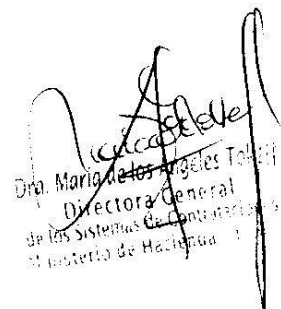 Dra. María de los Angeles
Directora General
de los Sistemas de Contrataciones
Ministerio de Hacienda